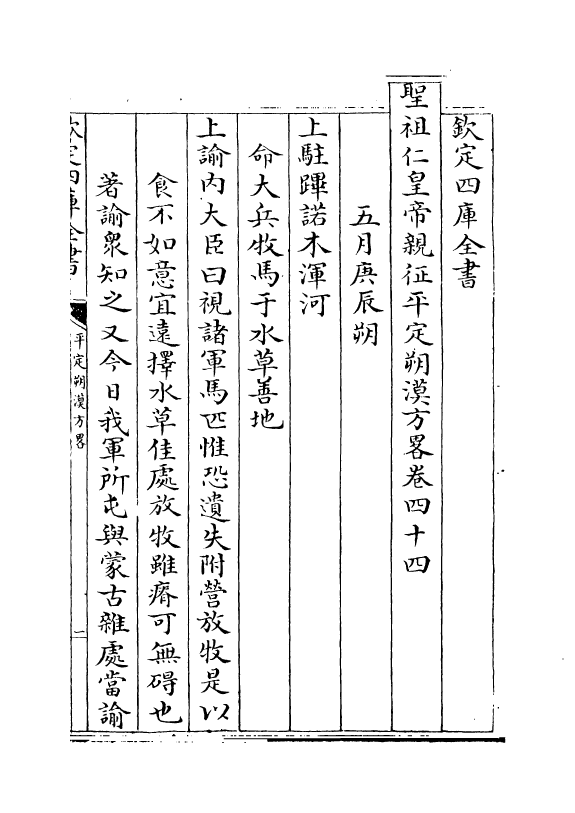 欽定四庫全書
聖祖仁皇帝親征平定朔漠方畧卷四十四
五月庚辰朔
上駐蹕諾木渾河
命大兵牧馬于水草善地
上諭内大臣曰視諸軍馬匹惟恐遺失附營放牧是以
食不如意宜遠擇水草佳處放牧雖瘠可無碍也
著諭衆知之又今日我軍所屯與蒙古雜處當諭
欽定四庫全書
平定朔漠方畧
一